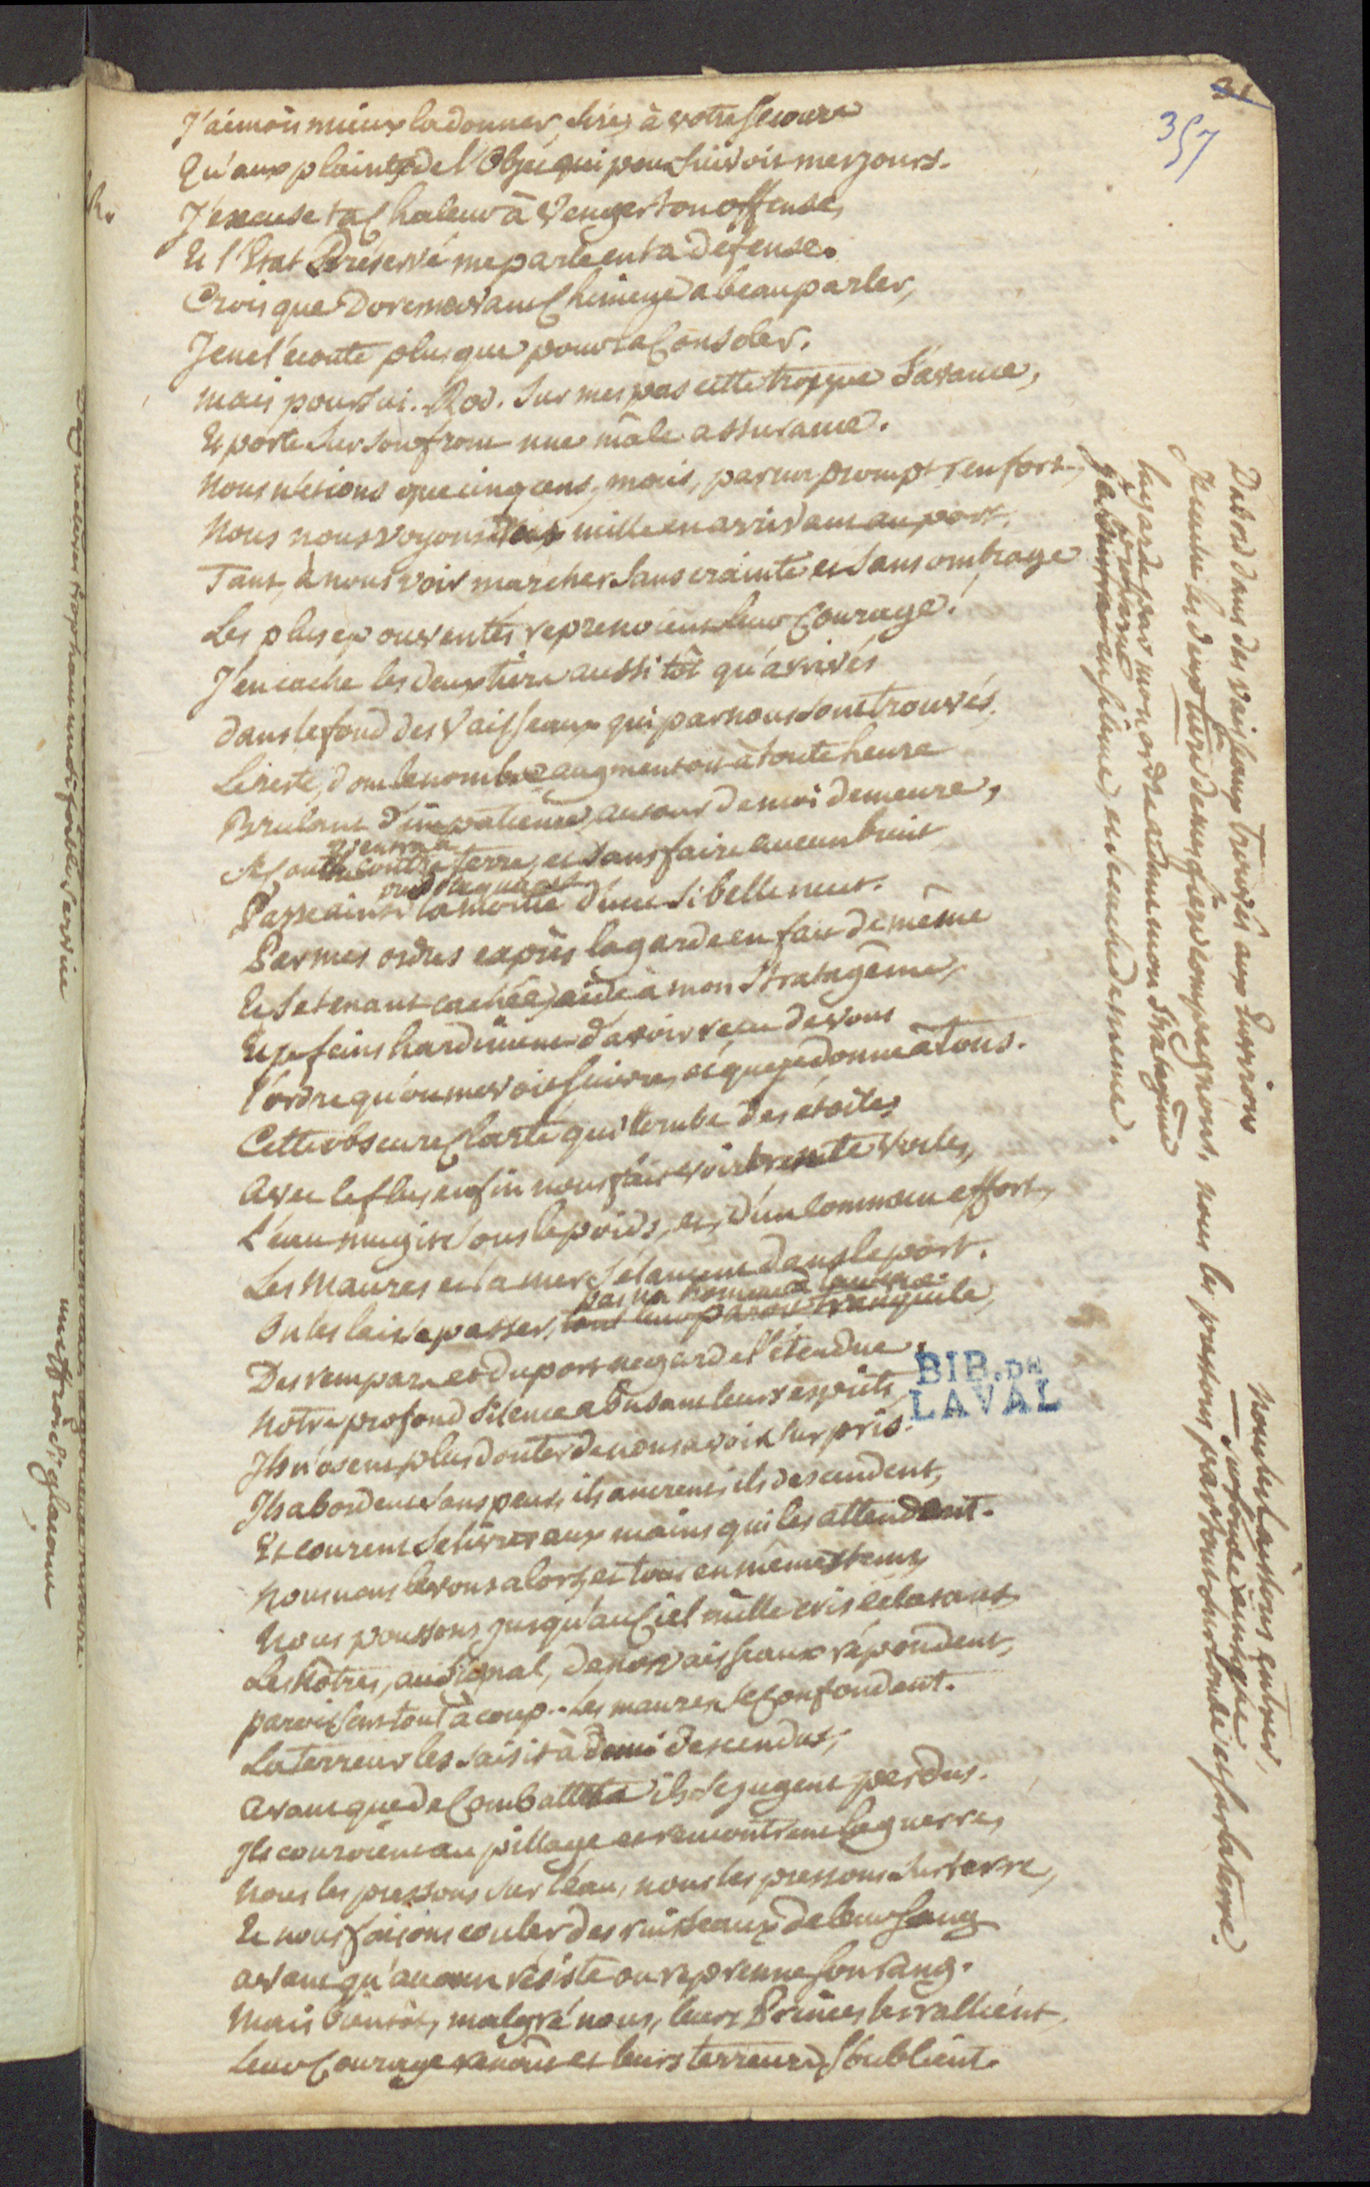 21
357
J'aimois mieux la donner, Sire, à votre secours
Qu'aux plaintes de l'Objet qui poursuivoit mes jours.
R. J'excuse ta Chaleur à Venger ton offense,
Et l'Etat Préservé me parle en ta défense.
Crois que Doresnavant Chimene a beau parler,
Je ne l'écoute plus que pour la Consoler.
mais poursui. Rod. Sur mes pas cette troppe S'avance,
Et porte Sur Son front une mâle assurance.
Nous n'étions que cinq cens, mais, par un prompt renfort,
Nous nous voyons trois mille en arrivant au port.
Tant, à nous voir marcher Sans crainte et Sans ombrage
Les plus epouventés reprenoient leur Courage.
J'en cache les deux tiers aussi tôt qu'arrivés
dans le fond des Vaisseaux qui par nous sont trouvés.
Le reste, dont le nombre augmentoit à toute heure
Brulant d'impatience, autour de moi demeure,
Se couche contre terre, et Sans faire aucun bruit
Passe ainsi la moitié d'une si belle nuit.
Par mes ordres exprès la garde en fait de même
Et Se tenant cachée, aide à mon Stratagême,
Et je feins hardiment d'avoir reçu de vous
l'ordre qu'on me voit Suivre, et que je donne à tous.
Cette obscure Clarté qui tombe des étoiles
Avec le flus, enfin nous fait voir trente Voiles,
L'eau mugit Sous le poids, et, d'un Commun effort,
Les Maures et la mer S'élancent dans le port.
On les laisse passer, tout leur paroit tranquile,
Des rempars et du port regarde l'étendue.
Notre profond Silence abusant leurs esprits
Ils n'osent plus douter de nous avoir Surpris.
Ils abordent sans peur, ils ancrent, ils descendent,
Et courent Se livrer aux mains qui les attendent.
Nous nous levons alors, et tous en même tems
Nous poussons jusqu'au Ciel mille cris éclatans
Les Nôtres, au Signal, de nos vaisseaux répondent,
paroissent tout à coup.. Les maures Se Confondent.
La Terreur les saisit à demi descendus;
Avant que de Combattre ils se jugent perdus.
Ils couroient au pillage et rencontrent la guerre,
Nous les pressons Sur l'eau, nous les pressons Sur terre,
Et nous faisons couler des ruisseaux de leur Sang
avant qu'aucun résiste ou reprenne Son rang.
Mais bientôt, malgré nous, leurs Princes les rallient,
Leur Courage renait et leurs terreurs S'oublient.
Dabord dans des Vaisseaux Trouvés aux Environs
les deux tiers de mes fiers compagnons,
la garde par mon ordre aidant mon Stratagême
en silence, et se cache de meme.
Nous les Laissons entrer,
nous les pressons par tout Sur londe et Sur la terre.
BIB. DE
LAVAL